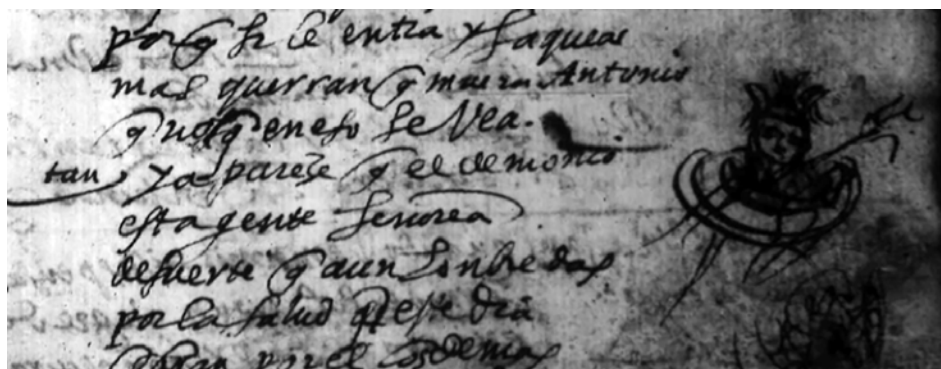 porq si le entra y saquea
mas querran q muera Antonio
q no q en eso se vea.
tan ya pareçe q el demonio
esta gente señorea
de suerte q aun
por la salud q ese dia
por el demas